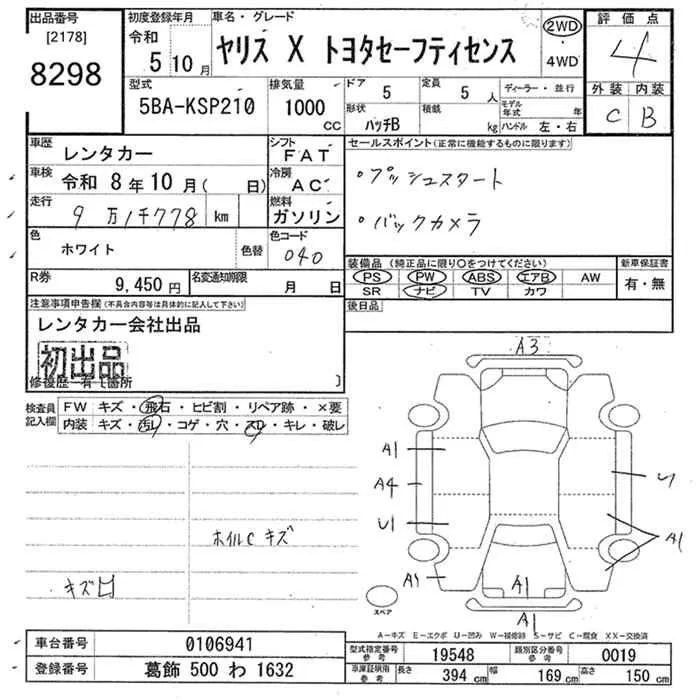 出品番号
[2178]
8298
初度登録年月
令和
5 10 月
車名・グレード
ヤリス X トヨタセーフティセンス
2WD
・
4WD
評価点
4
外装 内装
C B
型式
5BA-KSP210
排気量
1000
CC
ドア
5
定員
5 人
形状
ハッチB
積載
kg
ディーラー・並行
モデル年式 年
ハンドル 左・右
車歴
レンタカー
シフト
FAT
車検 令和 8 年 10 月( 日)
冷房
AC
走行
9万1千778 km
燃料
ガソリン
色
ホワイト
色替
色コード
040
R券
9,450 円
名変通知期限
月 日
セールスポイント(正常に機能するものに限ります)
・プッシュスタート
・バックカメラ
装備品 (純正品に限り○をつけてください)
PS PW ABS エアB AW
SR ナビ TV カワ
新車保証書
有・無
後日品
注意事項申告欄(不具合内容等は具体的に記入して下さい)
レンタカー会社出品
初出品
修復歴 有 箇所
検査員
記入欄
FW キズ・飛石・ヒビ割・リペア跡・×要
内装 キズ・汚れ・コゲ・穴・スレ・キレ・破レ
ホイルC キズ
キズ凹
A3
A1
A4
U1
A1
U1
A1
A1
スペア
A-キズ E-エクボ U-凹み W-補修跡 S-サビ C-腐食 XX-交換済
車台番号 0106941
登録番号 葛飾 500 わ 1632
型式指定番号
参考
19548
類別区分番号
参考
0019
車庫証明用
参考
長さ 394 cm 幅 169 cm 高さ 150 cm